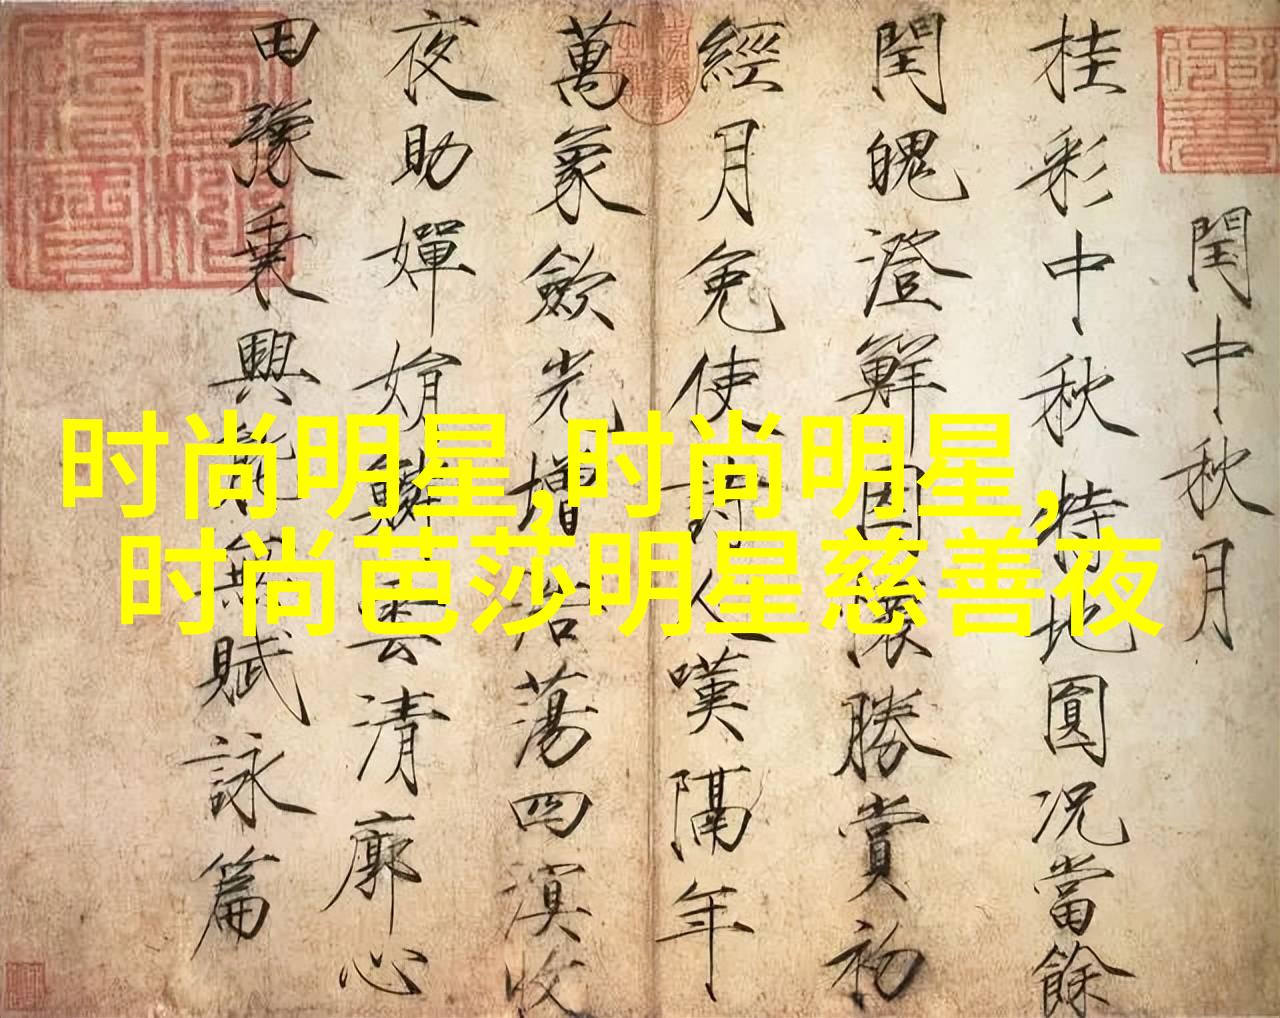 閏中秋月
桂彩中秋特地圓况當餘
閏魄澄鮮因懷勝賞初
經月免使詩人嘆隔年
萬象歛光增浩蕩四溟收
夜助嬋娟鱗雲清廓心
田豫乗興能無賦詠篇
时尚明星,时尚明星,
时尚芭莎明星慈善夜